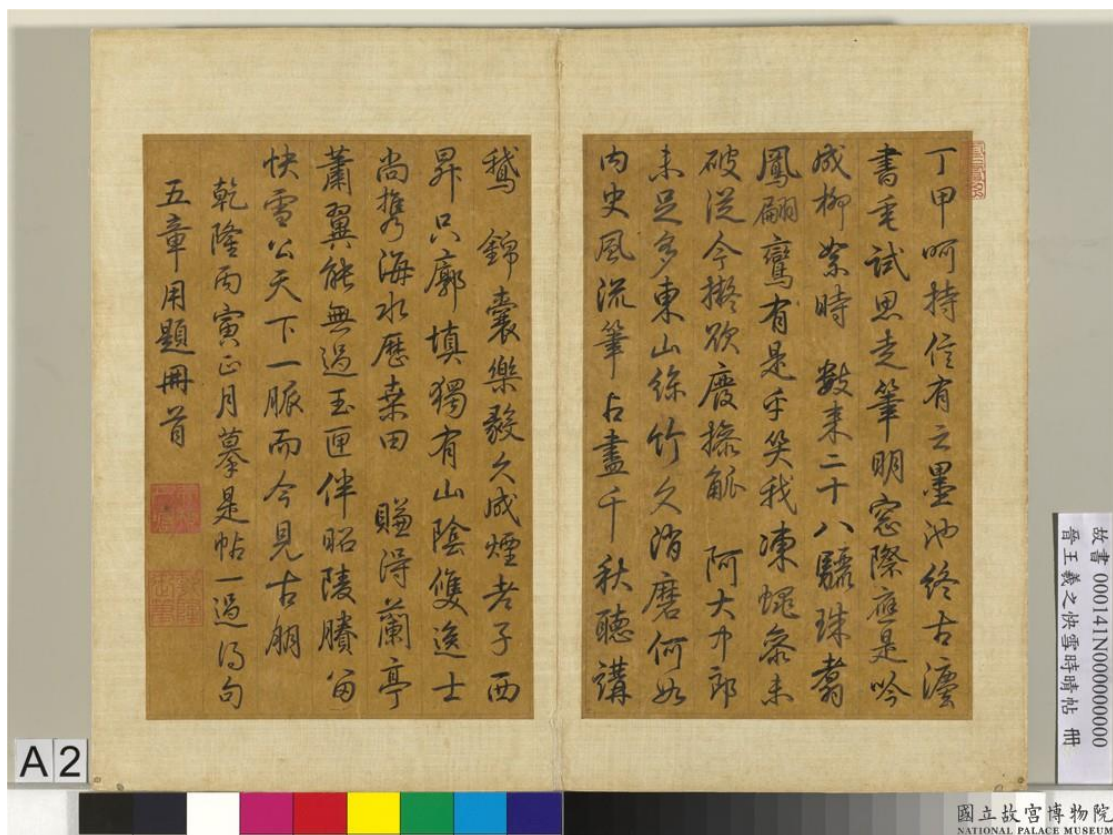 丁甲呵持信有之墨池終古瀋
書毫試思走筆明窓際應是吟
成柳絮時 數來二十八驪珠翥
鳳翩鸞有是乎笑我凍蠅參未
破從今擬欲廢操觚 阿大中郎
未足多東山絲竹久消磨何如
內史風流筆占盡千秋聽講
鵝 錦囊樂毅久成煙老子西
昇只廓填獨有山陰雙逸士
尚攜海水歷桑田 賺得蘭亭
蕭翼能無過玉匣伴昭陵賸留
快雪公天下一脈而今見古朋
乾隆丙寅正月摹是帖一過得句
五章用題冊首
故書 000141N000000000
晉王羲之快雪時晴帖 冊
A2
國立故宮博物院
NATIONAL PALACE MUSEUM